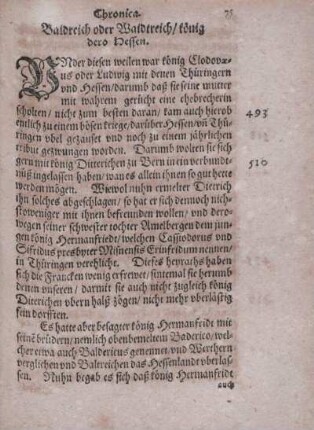 Chronica. 75
Baldreich oder Waldtreich / könig
dero Hessen.
VNder diesen weilen war könig Clodovæ-
us oder Ludwig mit denen Thüringern
vnd Hessen / darumb daß sie seine mutter
mit wahrem gerücht eine ehebrecherin
scholten / nicht zum besten daran / kam auch hierob
entlich zu einem bösen kriege / darüber Hessen / vñ Thürin
gen vbel gezauset vnd noch zu einem jährlichen
tribut gezwungen worden. Darumb wolten sie sich
gern mit könig Ditterichen zu Bern in ein verbünd-
nüß ingelassen haben / wan es allein ihnen so gut hette
werden mögen. Wiewol nuhn ermelter Diterich
ihn solches abgeschlagen / so hat er sich dennoch nich-
stoweniger mit ihnen befreunden wollen / vnd dero-
wegen seiner schwester tochter Amelbergen dem jun-
gen könig Hermanfriedt / welchen Cassiodorus vnd
Sifridus presbyter Misnensis Erinfridum nennen /
in Thüringen verehlicht. Dieses heyraths haben
sich die Francken wenig erfrewet / sintemal sie herumb
denen vnseren / darmit sie auch nicht zugleich könig
Diterichen vbern halß zögen / nicht mehr vberlästig
sein dorfften.
Es hatte aber besagter könig Hermanfridt mit
seinẽ brüdern / nemlich obenbemeltem Baderico / wel-
cher etwa auch Baldericus genennet / vnd Werthern
verglichen vnd Baltreichen das Hessenlandt vberlas-
sen. Nuhn begab es sich daß könig Hermanfridt
auch
493
510